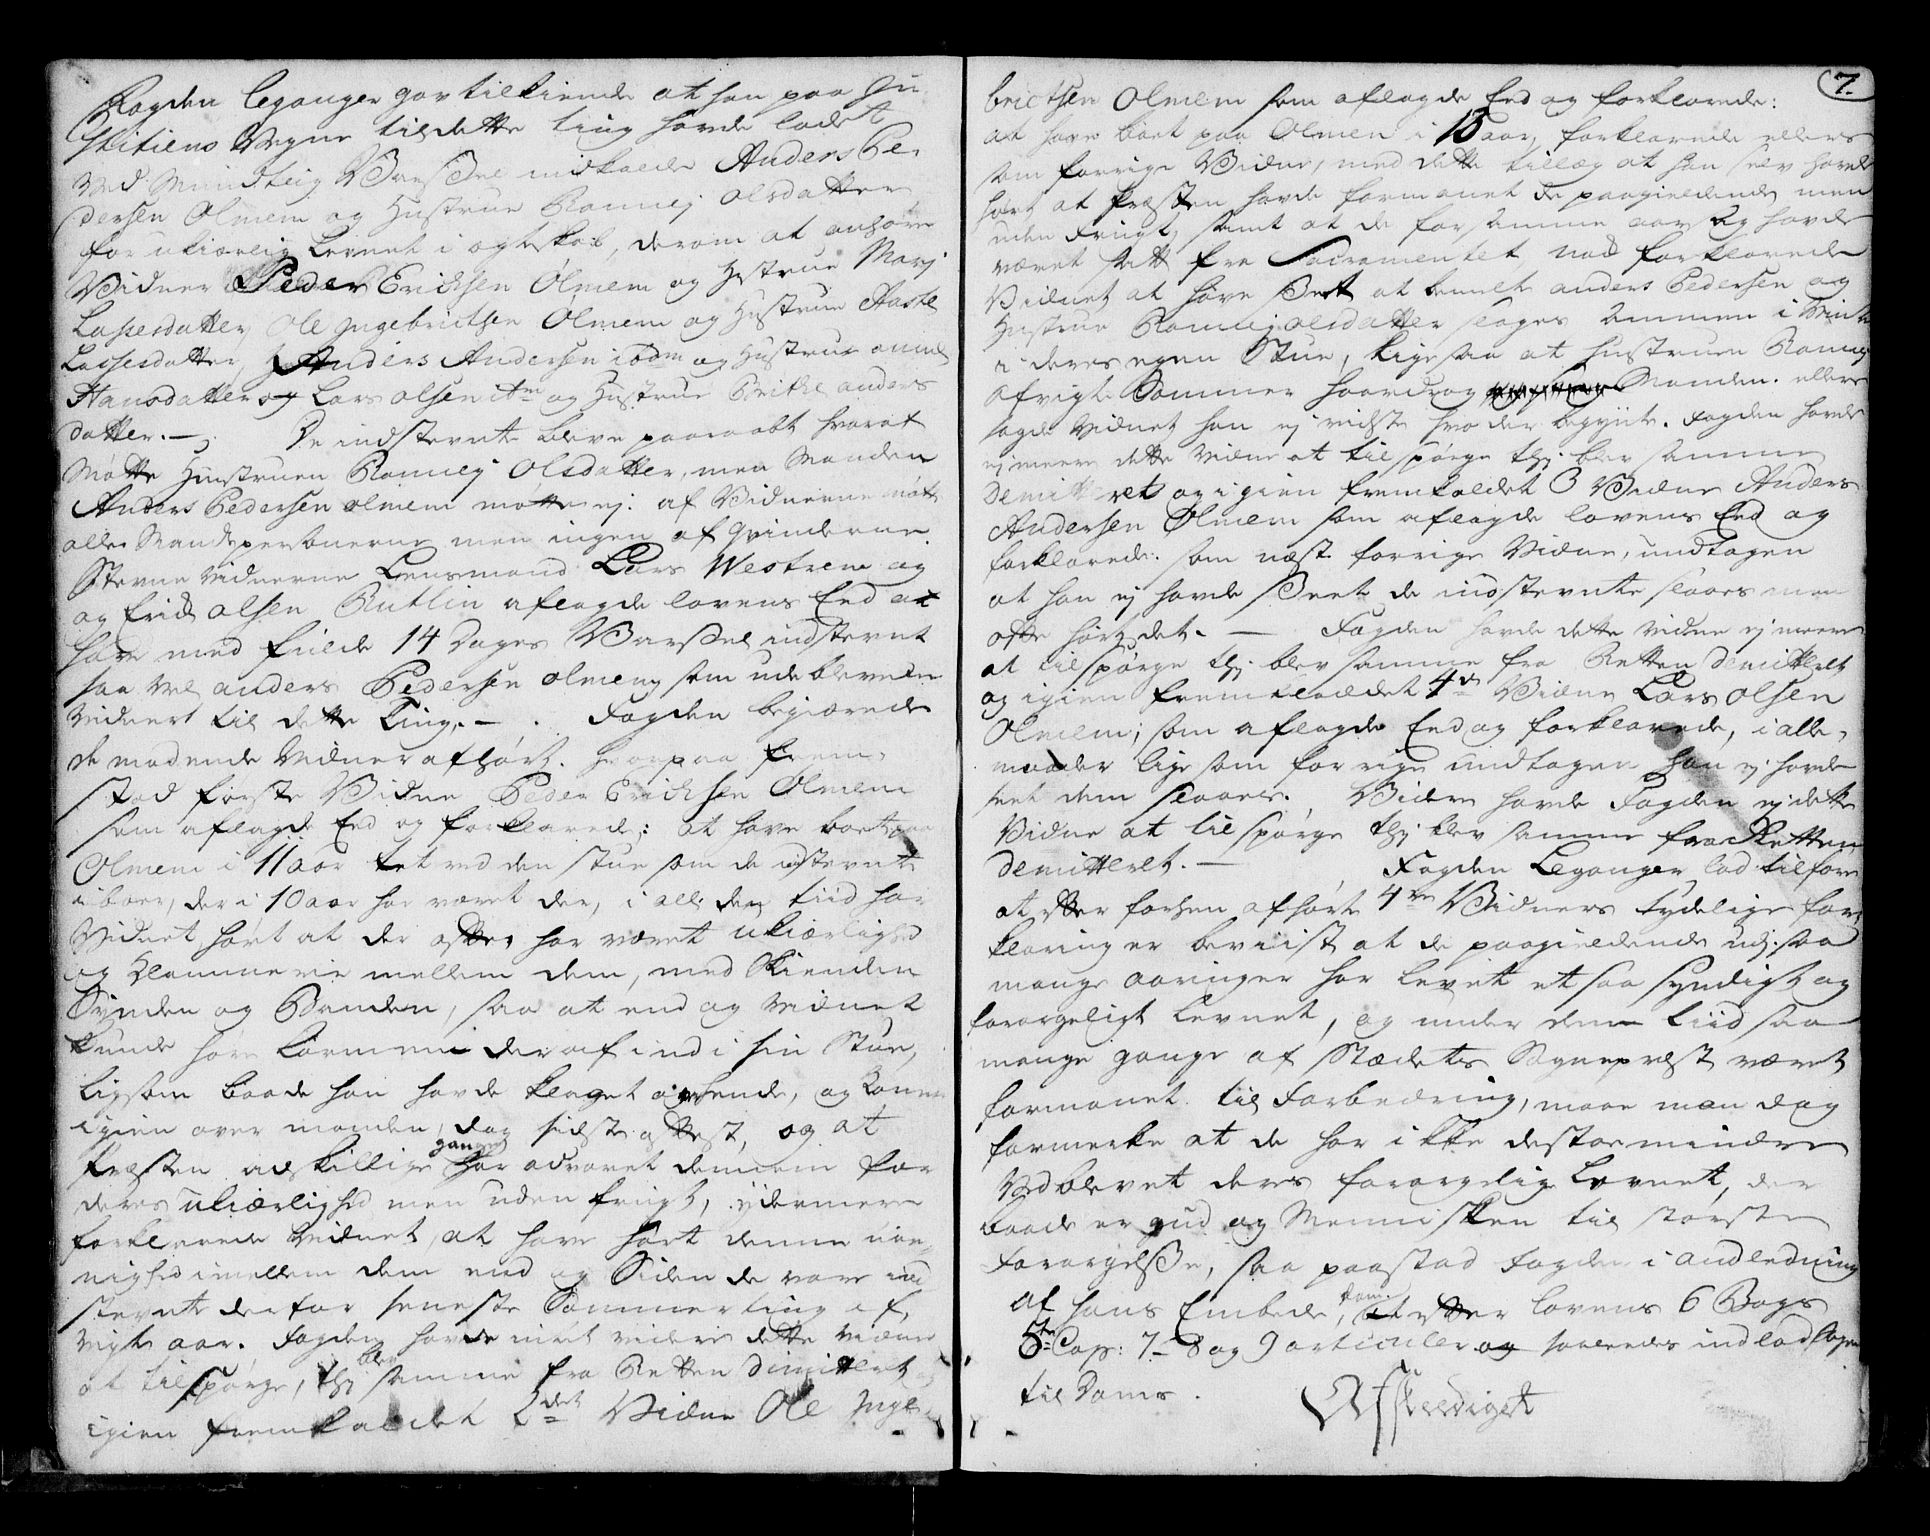 Fogden Leganger gav tilkiende at han paa Ju-
stitiens Vegne til dette ting havde ladet
Ved Mundtlig Varsel indkalde Anders Pe-
dersen Olmem og Hustrue Rannej Olsdatter
for ukiærlig Levnet i ægteskab, derom at anhøre
Vidner Peder Ericksen Olmem og Hustrue Marj
Lassesdatter, Ole Ingebrictsen Olmem og Hustrue Aasele
Lassesdatter, Anders Andersen ibdm og Hustrue anne
Hansdatter og Lars olsen itm og Hustrue Brithe anders
datter. — De indstevnte bleve paaraabt hvoraf
Møtte Hustruen Rannej Olsdatter, men Manden
Anders Pedersen olmem møtte ej. af Vidnerne møtte
alle Mandspersonerne men ingen af Qvinderne.
Stevne vidnerne Lensmand Lars Westrem og
og Erich olsen Rutlin aflagde lovens Eed at
have med fulde 14 Dages Varsel indstevnt
saa vel anders Pedersen olmem som udeblevne
Vidner til dette Ting. — . Fogden begiærede
de mødende Vidner afhørt. hvorpaa frem-
stod første Vidne Peder Ericksen Olmem
som aflagde Eed og forklarede: at have boet paa
Olmem i 11 aar tet ved den stue som de indstevnte
iboer, der i 10 aar har været der, i all den tiid har
Vidnet hørt at der ofte har været ukiærlighed
og Klammerie mellem dem, med Skienden
Synden og Banden, saa at end og Vidnet
kunde høre Larmen deraf ind i sin Stue,
ligesom baade han havde klaget over hende, og Konen
igien over manden, dog sidste oftest, og at
Præsten adskillige gange har advaret dennem for
deres ukiærlighed men uden frugt, ydermere
forklarede Vidnet, at have hørt denne uee-
nighed imellem dem end og Siden de vare ind
stevnte derfor seneste Sommerting i af-
vigte aar. Fogden havde intet videre dette Vidne
at tilspørge, thj blev samme fra Retten dimitteret og
igien fremkaldet 2det Vidne Ole Inge-
7.
brictsen Olmem som aflagde Eed og forklarede:
at have boet paa Olmen i 15 aar, forklarede ellers
som forrige Vidne, med dette tillæg at han selv havde
hørt at Præsten havde formanet de paagieldende men
uden Frugt, samt at de for samme aarsag havde
været satt fra Sacramentet, nod forklarede
Vidnet at have Seet at bemelte anders Pedersen og
Hustrue Rannej olsdatter sloges sammen i Vinter
i deres egen Stue, ligesaa at hustruen Rannej
afvigte Sommer haardrog Manden. ellers
sagde Vidnet han ej vidste hvo der begynte. Fogden havde
ej meere dette Vidne at tilspørge thj blev samme
Demitteret og igien fremkaldet 3 Vidne Anders
Andersen Olmem som aflagde lovens Eed og
forklarede. som næst forrige Vidne, undtagen
at han ej havde Seet de indstevnte slaaes men
ofte hørt det. — Fogden havde dette Vidne ej meere
at tilspørge thj blev samme fra Retten demitteret
og igien fremkaldet 4de Vidne Lars olsen
Olmem; som aflagde Eed og forklarede, i alle-
maader lige som forrige undtagen han ej havde
seet dem slaaes. Videre havde Fogden ej dette
Vidne at tilspørge thj blev samme fra Retten
demitteret. — Fogden Leganger lod tilføre
at efter forhen afhørte 4re Vidners tydelige for-
klaring er beviist at de paagieldende udj saa
mange aaringer har levet et saa syndigt og
forargeligt Levnet, og under den tiid saa
mange gange af Stædets Sognepræst været
formanet til Forbedring, maae man dog
formerke at de har ikke desto mindre
Vedblevet deres forargelige Levnet, der
baade er gud og Mennisken til største
Forargelse, saa paastod Fogden i andledning
af hans Embede, dom efter lovens 6 Bogs
5te Cap: 7 – 8 og 9 articuler og saaledes indlod sagen
til Doms.
Afskeediget